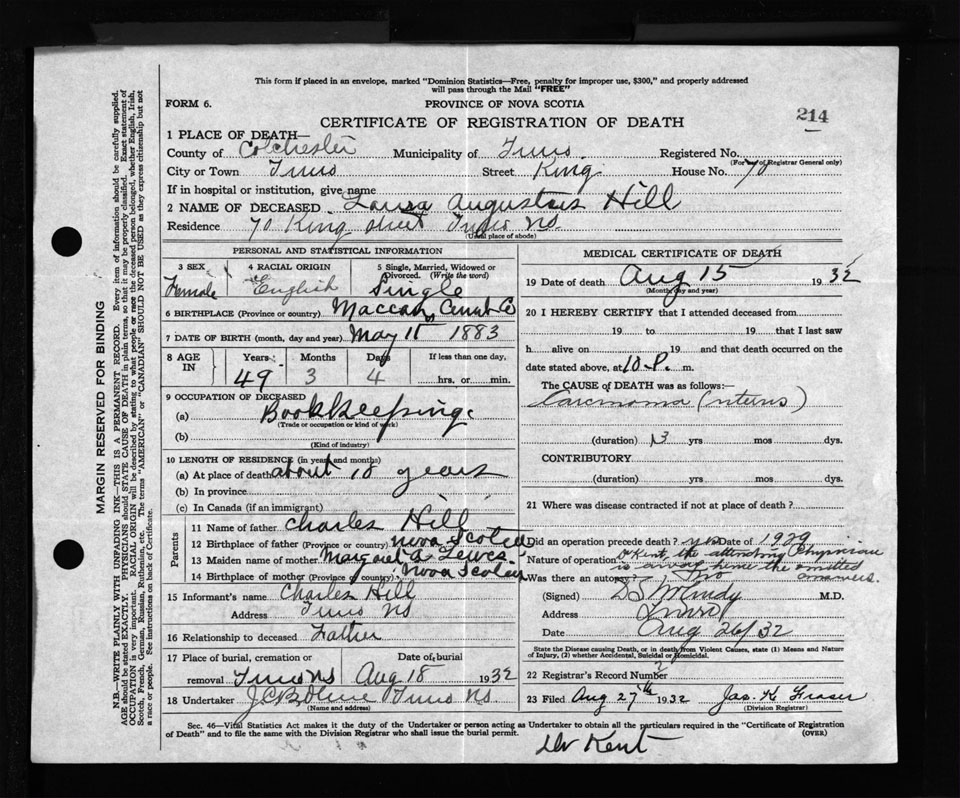 This form if placed in an envelope, marked "Dominion Statistics—Free, penalty for improper use, $300," and properly addressed
will pass through the Mail "FREE"
FORM 6.
PROVINCE OF NOVA SCOTIA
CERTIFICATE OF REGISTRATION OF DEATH
214
1 PLACE OF DEATH—
County of Colchester Municipality of Truro Registered No.
(For use of Registrar General only)
City or Town Truro Street King House No. 70
If in hospital or institution, give name
2 NAME OF DECEASED Laura Augustus Hill
Residence 70 King street Truro NS.
(Usual place of abode)
PERSONAL AND STATISTICAL INFORMATION
3 SEX Female
4 RACIAL ORIGIN English
5 Single, Married, Widowed or Divorced. (Write the word) Single
6 BIRTHPLACE (Province or country) Maccan, Co
7 DATE OF BIRTH (month, day and year) May 11 1883
8 AGE IN Years Months Days If less than one day,
49 3 4 hrs. or min.
9 OCCUPATION OF DECEASED
(a) Bookkeeping
(Trade or occupation or kind of work)
(b)
(Kind of industry)
10 LENGTH OF RESIDENCE (in years and months)
(a) At place of death about 18 years
(b) In province
(c) In Canada (if an immigrant)
Parents
11 Name of father Charles Hill
12 Birthplace of father (Province or country) Nova Scotia
13 Maiden name of mother Margaret A Lewis
14 Birthplace of mother (Province or country) Nova Scotia
15 Informant's name Charles Hill
Address Truro NS
16 Relationship to deceased Father
17 Place of burial, cremation or removal Truro NS Date of burial Aug 18 1932
18 Undertaker Truro NS
(Name and address)
MEDICAL CERTIFICATE OF DEATH
19 Date of death Aug 15 1932
(Month, day and year)
20 I HEREBY CERTIFY that I attended deceased from
19 to 19 that I last saw
h alive on 19 and that death occurred on the
date stated above, at 10. P. m.
The CAUSE of DEATH was as follows:
Carcinoma
(duration) 3 yrs mos dys.
CONTRIBUTORY
(duration) yrs mos dys.
21 Where was disease contracted if not at place of death?
Did an operation precede death? yes Date of 1929
Nature of operation Dr Kent, the attending Physician
is away from home the omitted
answers.
Was there an autopsy? no
(Signed) M.D.
Address Truro
Date Aug 26/32
State the Disease causing Death, or in death from Violent Causes, state (1) Means and Nature
of Injury, (2) whether Accidental, Suicidal or Homicidal.
22 Registrar's Record Number
23 Filed Aug 27th 1932 Jas. K Fraser
(Division Registrar)
Sec. 46—Vital Statistics Act makes it the duty of the Undertaker or person acting as Undertaker to obtain all the particulars required in the "Certificate of Registration
of Death" and to file the same with the Division Registrar who shall issue the burial permit.
(OVER)
Dr Kent
MARGIN RESERVED FOR BINDING
N.B.—WRITE PLAINLY WITH UNFADING INK—THIS IS A PERMANENT RECORD. Every item of information should be carefully supplied.
AGE should be stated EXACTLY. PHYSICIANS should STATE CAUSE OF DEATH in plain terms, so that it may be properly classified. Exact statement of
OCCUPATION is very important. RACIAL ORIGIN will be described by stating to what people or race the deceased person belonged, whether English, Irish,
Scotch, French, German, Russian, Ruthenian, etc. The terms "AMERICAN" or "CANADIAN" SHOULD NOT BE USED as they express citizenship but not
a race or people. See instructions on back of Certificate.